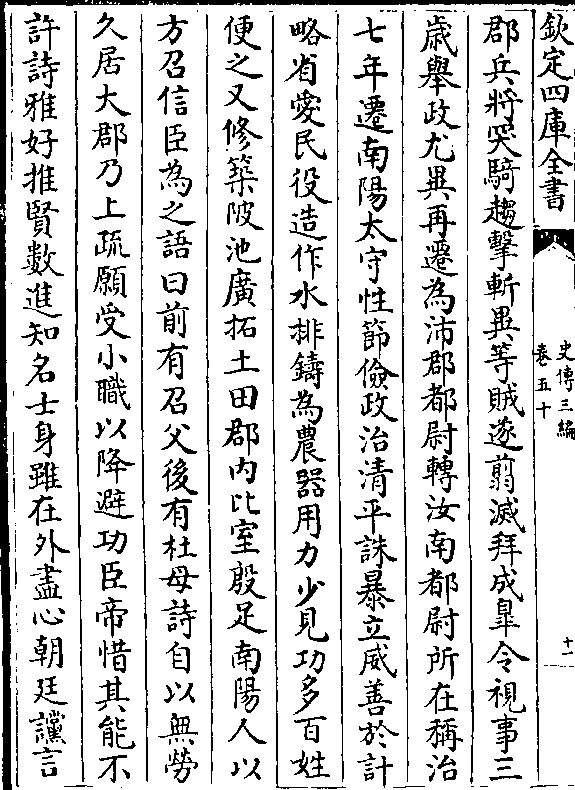 欽定四庫全書
史傳三編
卷五十
十一
郡兵將突騎趨擊斬異等賊遂翦滅拜成臯令視事三
歳舉政尤異再遷為沛郡都尉轉汝南都尉所在稱治
七年遷南陽太守性節儉政治清平誅暴立威善於計
略省愛民役造作水排鑄為農器用力少見功多百姓
便之又修築陂池廣拓土田郡内比室殷足南陽人以
方召信臣為之語曰前有召父後有杜母詩自以無勞
久居大郡乃上疏願受小職以降避功臣帝惜其能不
許詩雅好推賢數進知名士身雖在外盡心朝廷讜言